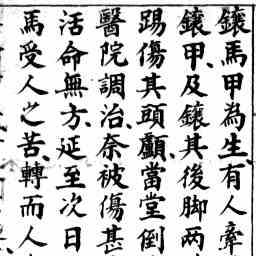 鑲馬甲為生、有人牽
鑲甲、及鑲其後脚两
踢傷其頭顱、當堂倒
醫院調治、奈被傷甚
活命無方、延至次日
馬受人之苦、轉而人